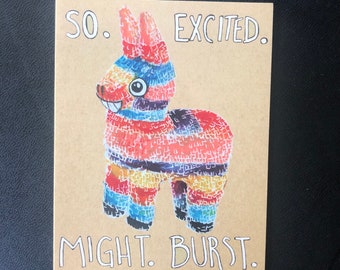 SO. EXCITED.
MIGHT. BURST.